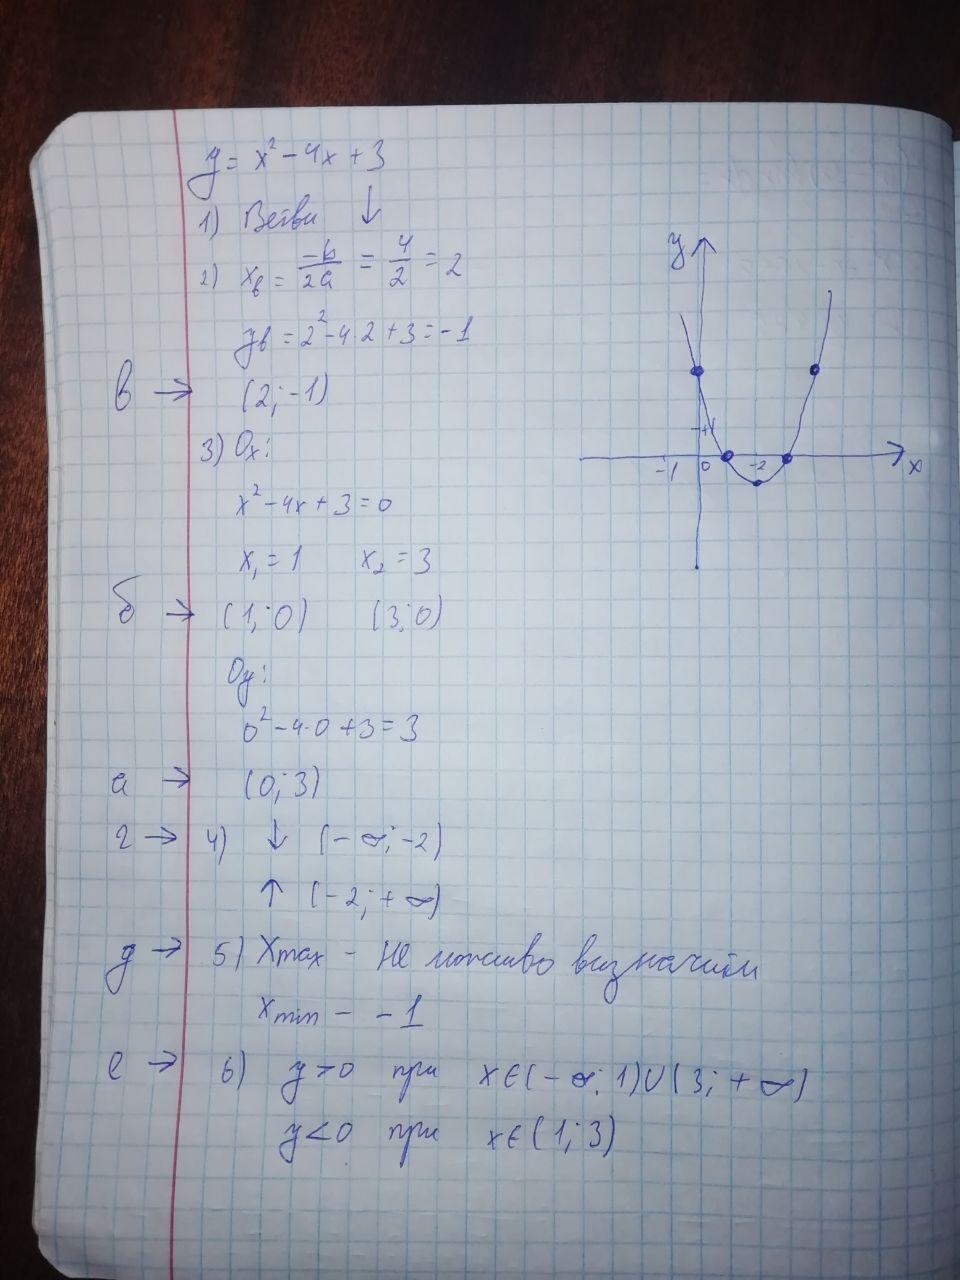 y = x² - 4x + 3
1) Ветви ↓
2) xв = -b/2a = 4/2 = 2
yв = 2² - 4·2 + 3 = -1
в → (2; -1)
3) Ox:
x² - 4x + 3 = 0
x₁ = 1 x₂ = 3
б → (1; 0) (3; 0)
Oy:
0² - 4·0 + 3 = 3
а → (0; 3)
г → 4) ↓ (-∞; -2)
↑ (-2; +∞)
д → 5) Xmax - не можливо визначити
Xmin - -1
е → 6) y > 0 при x∈(-∞; 1)∪(3; +∞)
y < 0 при x∈(1; 3)
y
+1
-1 0 -2 x